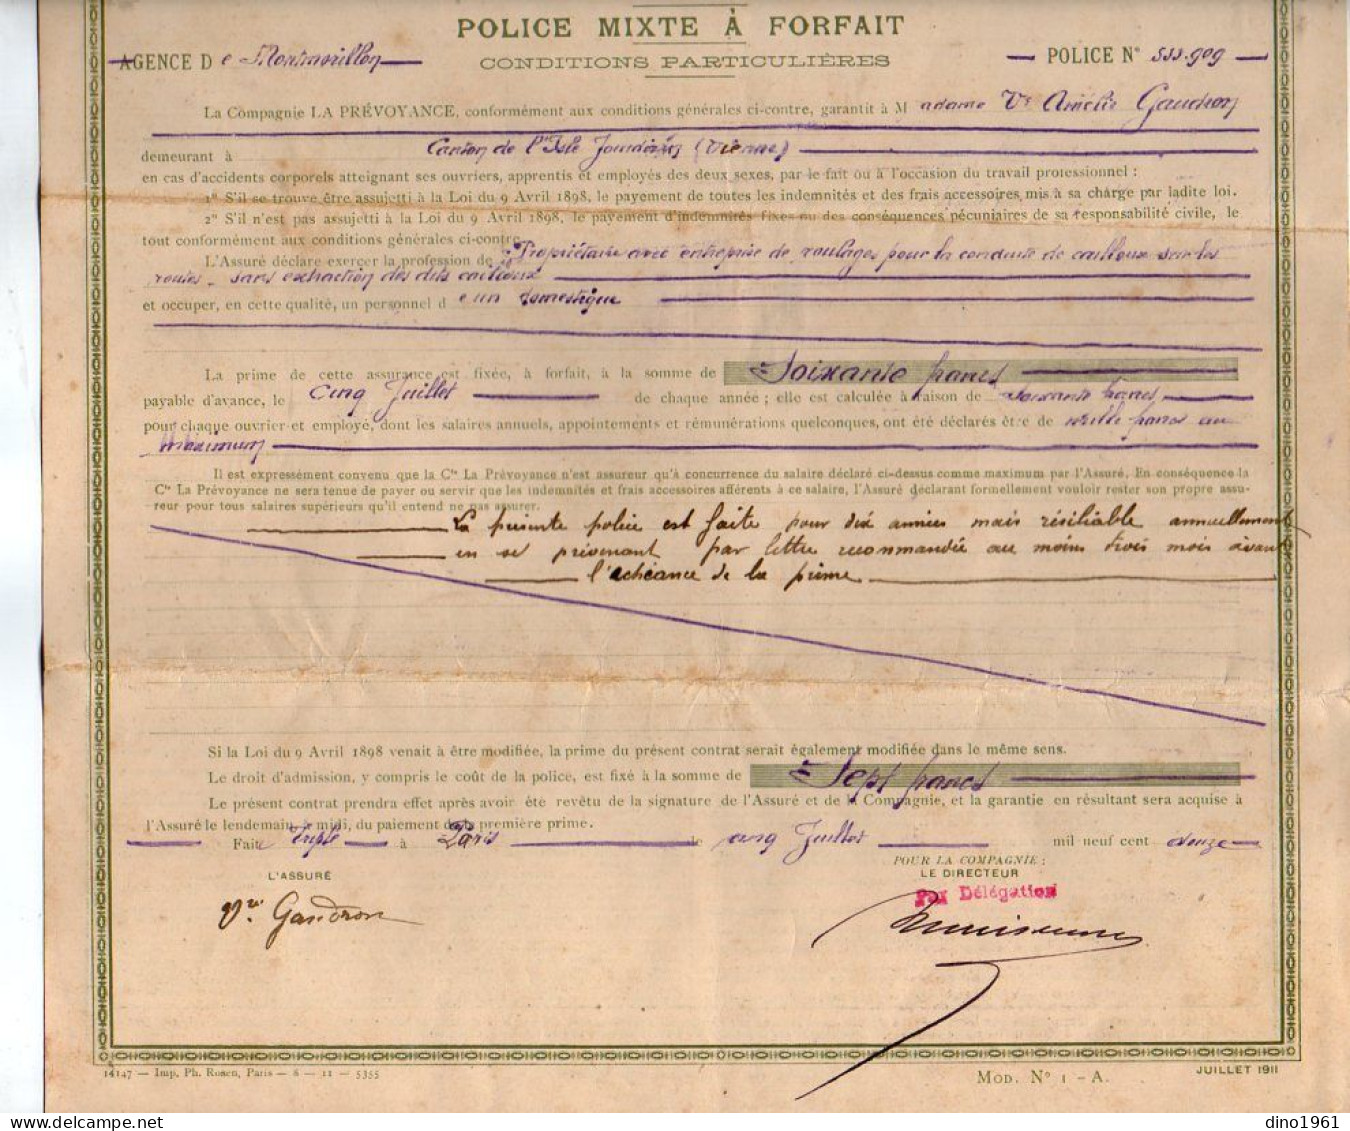 POLICE MIXTE À FORFAIT
AGENCE De Montmorillon
CONDITIONS PARTICULIÈRES
POLICE N° 533.909
La Compagnie LA PRÉVOYANCE, conformément aux conditions générales ci-contre, garantit à Madame Ve Amélie Gaudron
demeurant à Canton de l'Isle Jourdain (Vienne)
en cas d'accidents corporels atteignant ses ouvriers, apprentis et employés des deux sexes, par le fait ou à l'occasion du travail professionnel :
1° S'il se trouve être assujetti à la Loi du 9 Avril 1898, le payement de toutes les indemnités et des frais accessoires mis à sa charge par ladite loi.
2° S'il n'est pas assujetti à la Loi du 9 Avril 1898, le payement d'indemnités fixes ou des conséquences pécuniaires de sa responsabilité civile, le
tout conformément aux conditions générales ci-contre.
L'Assuré déclare exercer la profession de Propriétaire avec entreprise de roulages pour la conduite de cailloux sur les
routes - sans extraction des dits cailloux
et occuper, en cette qualité, un personnel de un domestique
La prime de cette assurance est fixée, à forfait, à la somme de Soixante francs
payable d'avance, le Cinq Juillet de chaque année ; elle est calculée à raison de Soixante francs
pour chaque ouvrier et employé, dont les salaires annuels, appointements et rémunérations quelconques, ont été déclarés être de mille francs au
maximum
Il est expressément convenu que la Cie La Prévoyance n'est assureur qu'à concurrence du salaire déclaré ci-dessus comme maximum par l'Assuré. En conséquence la
Cie La Prévoyance ne sera tenue de payer ou servir que les indemnités et frais accessoires afférents à ce salaire, l'Assuré déclarant formellement vouloir rester son propre assu-
reur pour tous salaires supérieurs qu'il entend ne pas assurer.
La présente police est faite pour dix années mais résiliable annuellement
en se prévenant par lettre recommandée au moins trois mois avant
l'échéance de la prime
Si la Loi du 9 Avril 1898 venait à être modifiée, la prime du présent contrat serait également modifiée dans le même sens.
Le droit d'admission, y compris le coût de la police, est fixé à la somme de Sept francs
Le présent contrat prendra effet après avoir été revêtu de la signature de l'Assuré et de la Compagnie, et la garantie en résultant sera acquise à
l'Assuré le lendemain, à midi, du paiement de la première prime.
Fait Triple à Paris le cinq Juillet mil neuf cent douze
L'ASSURÉ
POUR LA COMPAGNIE :
LE DIRECTEUR
Par Délégation
Vve Gaudron
14147 — Imp. Ph. Rosen, Paris — 6 — 11 — 5355
MOD. N° 1 - A.
JUILLET 1911
dino1961